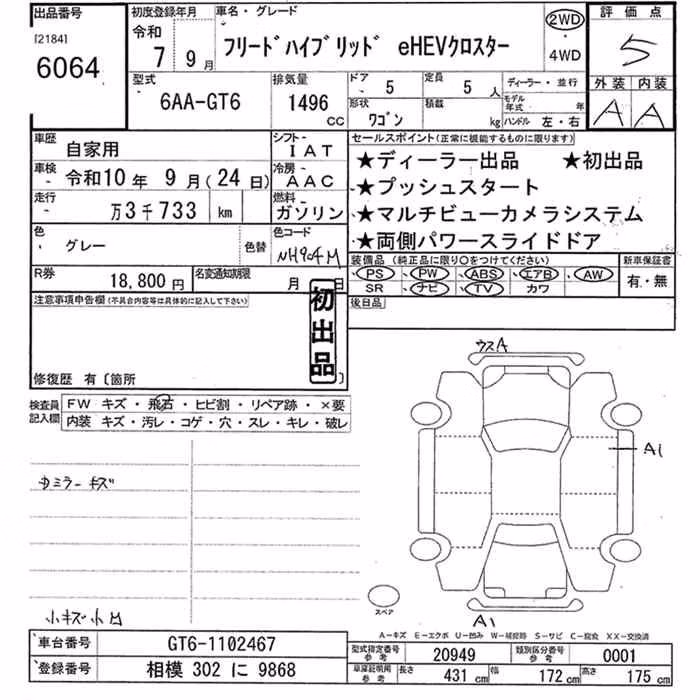 出品番号
[2184]
6064
初度登録年月
令和
7年 9月
車名・グレード
フリードハイブリッド eHEVクロスター
2WD
・
4WD
評価点
5
外装 内装
A A
型式
6AA-GT6
排気量
1496 CC
ドア
5
形状
ワゴン
定員
5 人
積載
kg
ディーラー・並行
モデル年式 年
ハンドル 左・右
車歴
自家用
車検
令和10年 9月(24日)
走行
万3千733 km
シフト
IAT
冷房
AAC
燃料
ガソリン
色
グレー
色替
色コード
NH904M
R券
18,800円
名変通知期限
月 日
セールスポイント(正常に機能するものに限ります)
★ディーラー出品 ★初出品
★プッシュスタート
★マルチビューカメラシステム
★両側パワースライドドア
装備品 (純正品に限り○をつけてください)
PS PW ABS エアB AW
SR ナビ TV カワ
新車保証書
有・無
後日品
注意事項申告欄(不具合内容等は具体的に記入して下さい)
初出品
修復歴 有〔箇所 〕
検査員記入欄
FW キズ・飛石・ヒビ割・リペア跡・×要
内装 キズ・汚レ・コゲ・穴・スレ・キレ・破レ
ミラーキズ
小キズ小凹
ウスA
A1
A1
スペア
A－キズ E－エクボ U－凹み W－補修跡 S－サビ C－腐食 XX－交換済
車台番号
GT6-1102467
登録番号
相模 302 に 9868
型式指定番号 参考
20949
類別区分番号 参考
0001
車庫証明用 参考
長さ 431 cm
幅 172 cm
高さ 175 cm